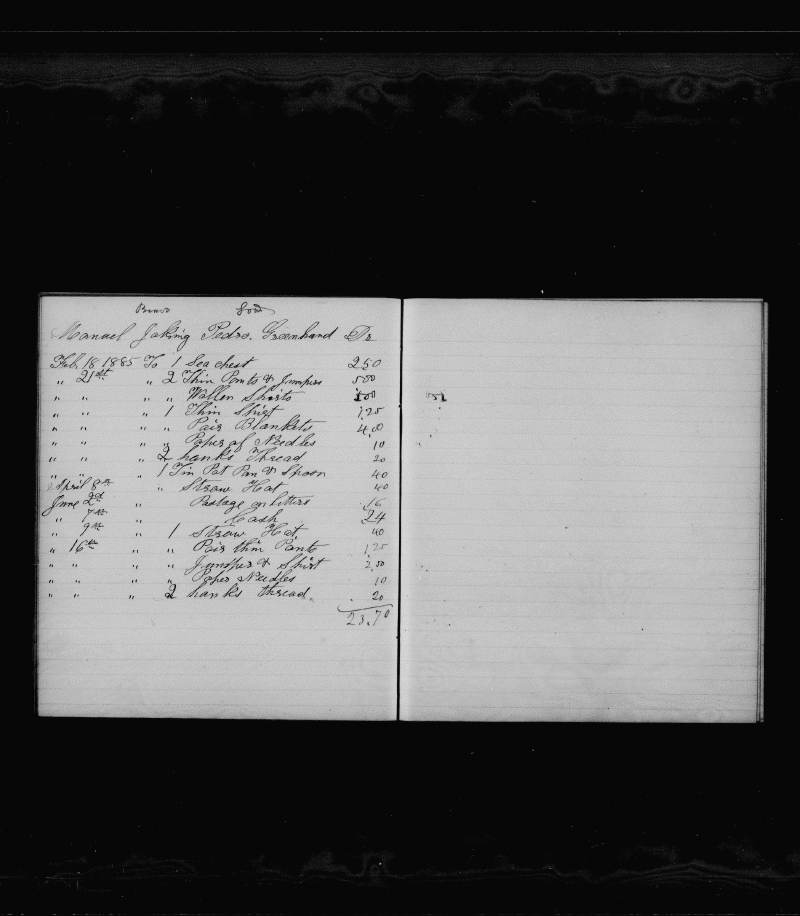 Bravo
Manuel Joking Pedro. Greenhand Dr
Feb. 18 1885 To 1 Sea chest 2 50
" 21st " 2 Thin Pants & Jumpers 5 00
" " " " Wollen Shirts 5 00
" " " 1 Thin Shirt 1,25
" " " " Pair Blankets 4,00
" " " " Paper of Needles 10
" " " 2 hanks Thread 20
" " " 1 Tin Pot Pan & Spoon 40
April 8th " Straw Hat 40
June 2d " Postage on letters 16
" 7th " Cash 24
" 9th " 1 Straw Hat 40
" 16th " " Pair thin Pants 1,25
" " " " Jumper & Shirt 2,50
" " " " Paper Needles 10
" " " 2 hanks thread. 20
23.70